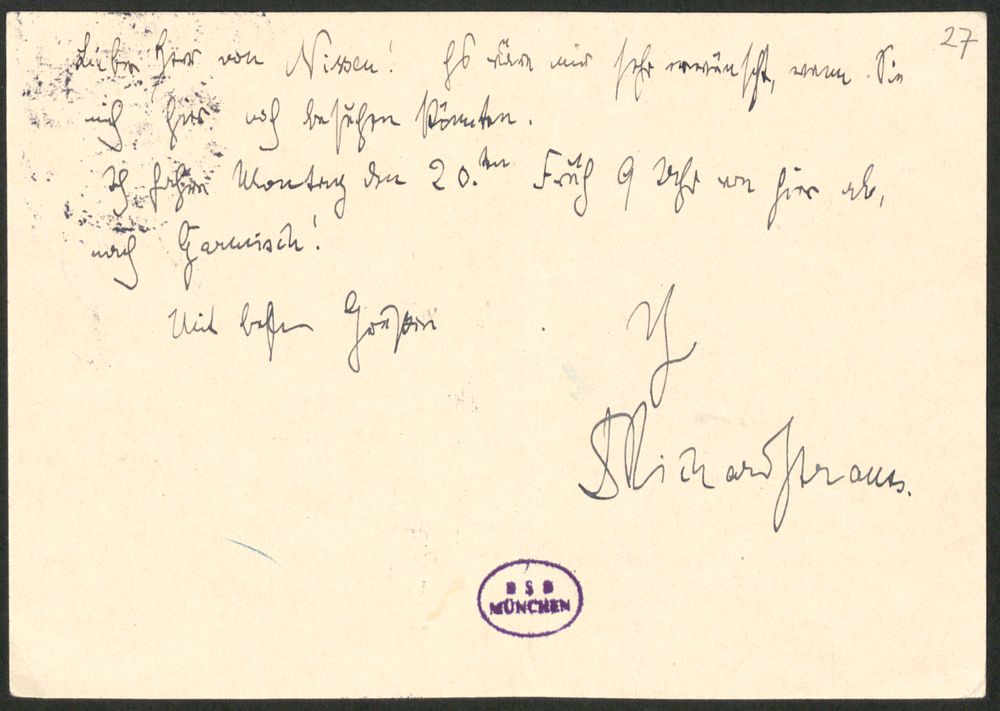 27
Lieber Herr von Nissen! Es wäre mir sehr erwünscht, wenn Sie
mich hier noch besuchen könnten.
Ich fahre Montag den 20.ten Früh 9 Uhr von hier ab,
nach Garmisch!
Mit besten Grüßen
Ihr
DRichard Strauss.
BSB
MÜNCHEN